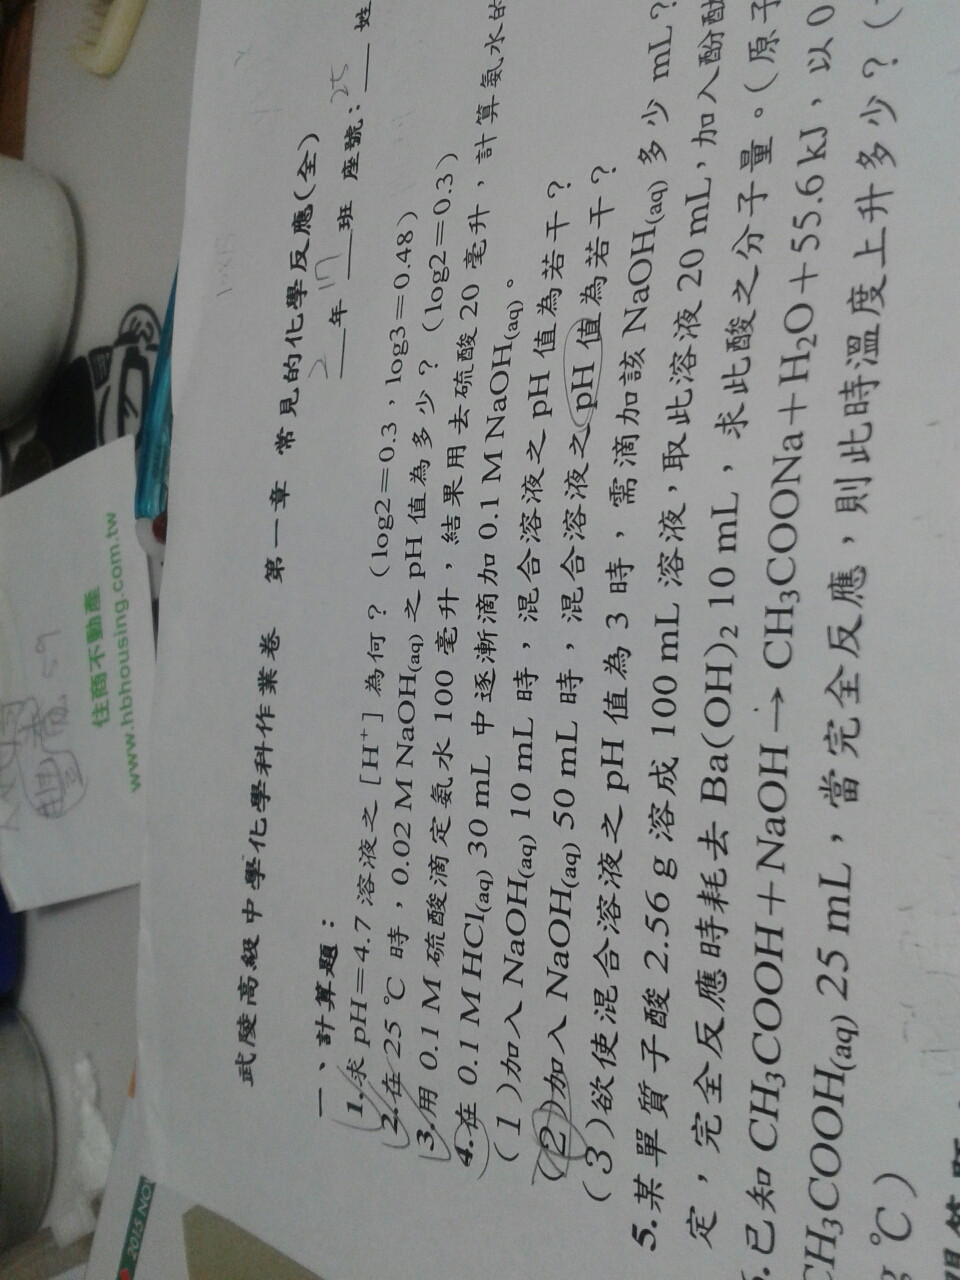 武陵高級中學化學科作業卷 第一章 常見的化學反應(全)
2 年 17 班 座號：25 姓
一、計算題：
1.求 pH＝4.7 溶液之 [H⁺] 為何？（log2＝0.3，log3＝0.48）
2.在 25 ℃ 時，0.02 M NaOH(aq) 之 pH 值為多少？（log2＝0.3）
3.用 0.1 M 硫酸滴定氨水 100 毫升，結果用去硫酸 20 毫升，計算氨水的
4.在 0.1 M HCl(aq) 30 mL 中逐漸滴加 0.1 M NaOH(aq)。
(1)加入 NaOH(aq) 10 mL 時，混合溶液之 pH 值為若干？
(2)加入 NaOH(aq) 50 mL 時，混合溶液之 pH 值為若干？
(3)欲使混合溶液之 pH 值為 3 時，需滴加該 NaOH(aq) 多少 mL？
5.某單質子酸 2.56 g 溶成 100 mL 溶液，取此溶液 20 mL，加入酚酞
定，完全反應時耗去 Ba(OH)₂ 10 mL，求此酸之分子量。（原子
已知 CH₃COOH＋NaOH → CH₃COONa＋H₂O＋55.6 kJ，以 0
CH₃COOH(aq) 25 mL，當完全反應，則此時溫度上升多少？（
℃）
住商不動產
www.hbhousing.com.tw
2015 NOV